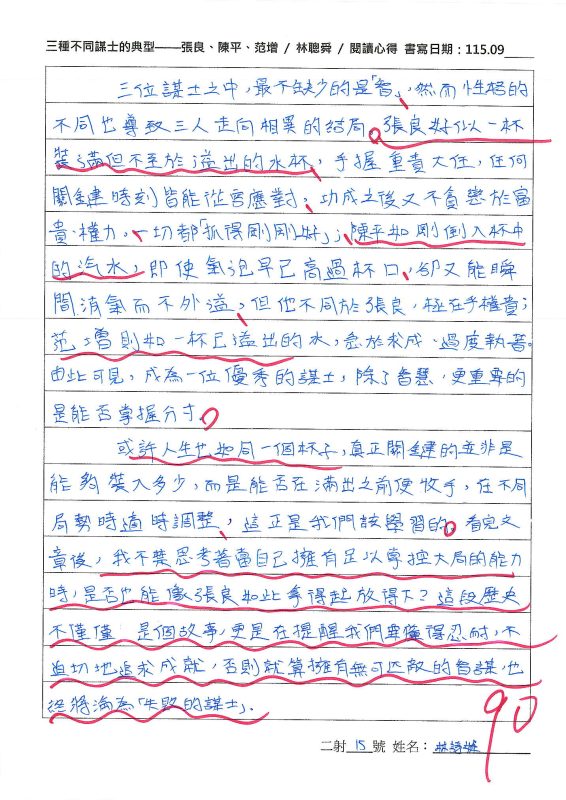 三種不同謀士的典型——張良、陳平、范增 / 林聰舜 / 閱讀心得 書寫日期：115.09
三位謀士之中，最不缺少的是「智」，然而性格的
不同也導致三人走向相異的結局。張良好似一杯
裝滿但不至於溢出的水杯，手握重責大任，任何
關鍵時刻皆能從容應對，功成之後又不貪戀於富
貴、權力，一切都「抓得剛剛好」；陳平如剛倒入杯中
的汽水，即使氣泡早已高過杯口，卻又能瞬
間消氣而不外溢，但他不同於張良，極在乎權貴；
范增則如一杯已溢出的水，急於求成、過度執著。
由此可見，成為一位優秀的謀士，除了智慧，更重要的
是能否掌握分寸。
或許人生也如同一個杯子，真正關鍵的並非是
能夠裝入多少，而是能否在滿出之前便收手，在不同
局勢時適時調整，這正是我們該學習的。看完文
章後，我不禁思考著當自己擁有足以掌控大局的能力
時，是否也能像張良如此拿得起放得下？這段歷史
不僅僅是個故事，更是在提醒我們要懂得忍耐，不
迫切地追求成就，否則就算擁有無可匹敵的智謀，也
終將淪為「失敗的謀士」。
90
二射 15 號 姓名：林